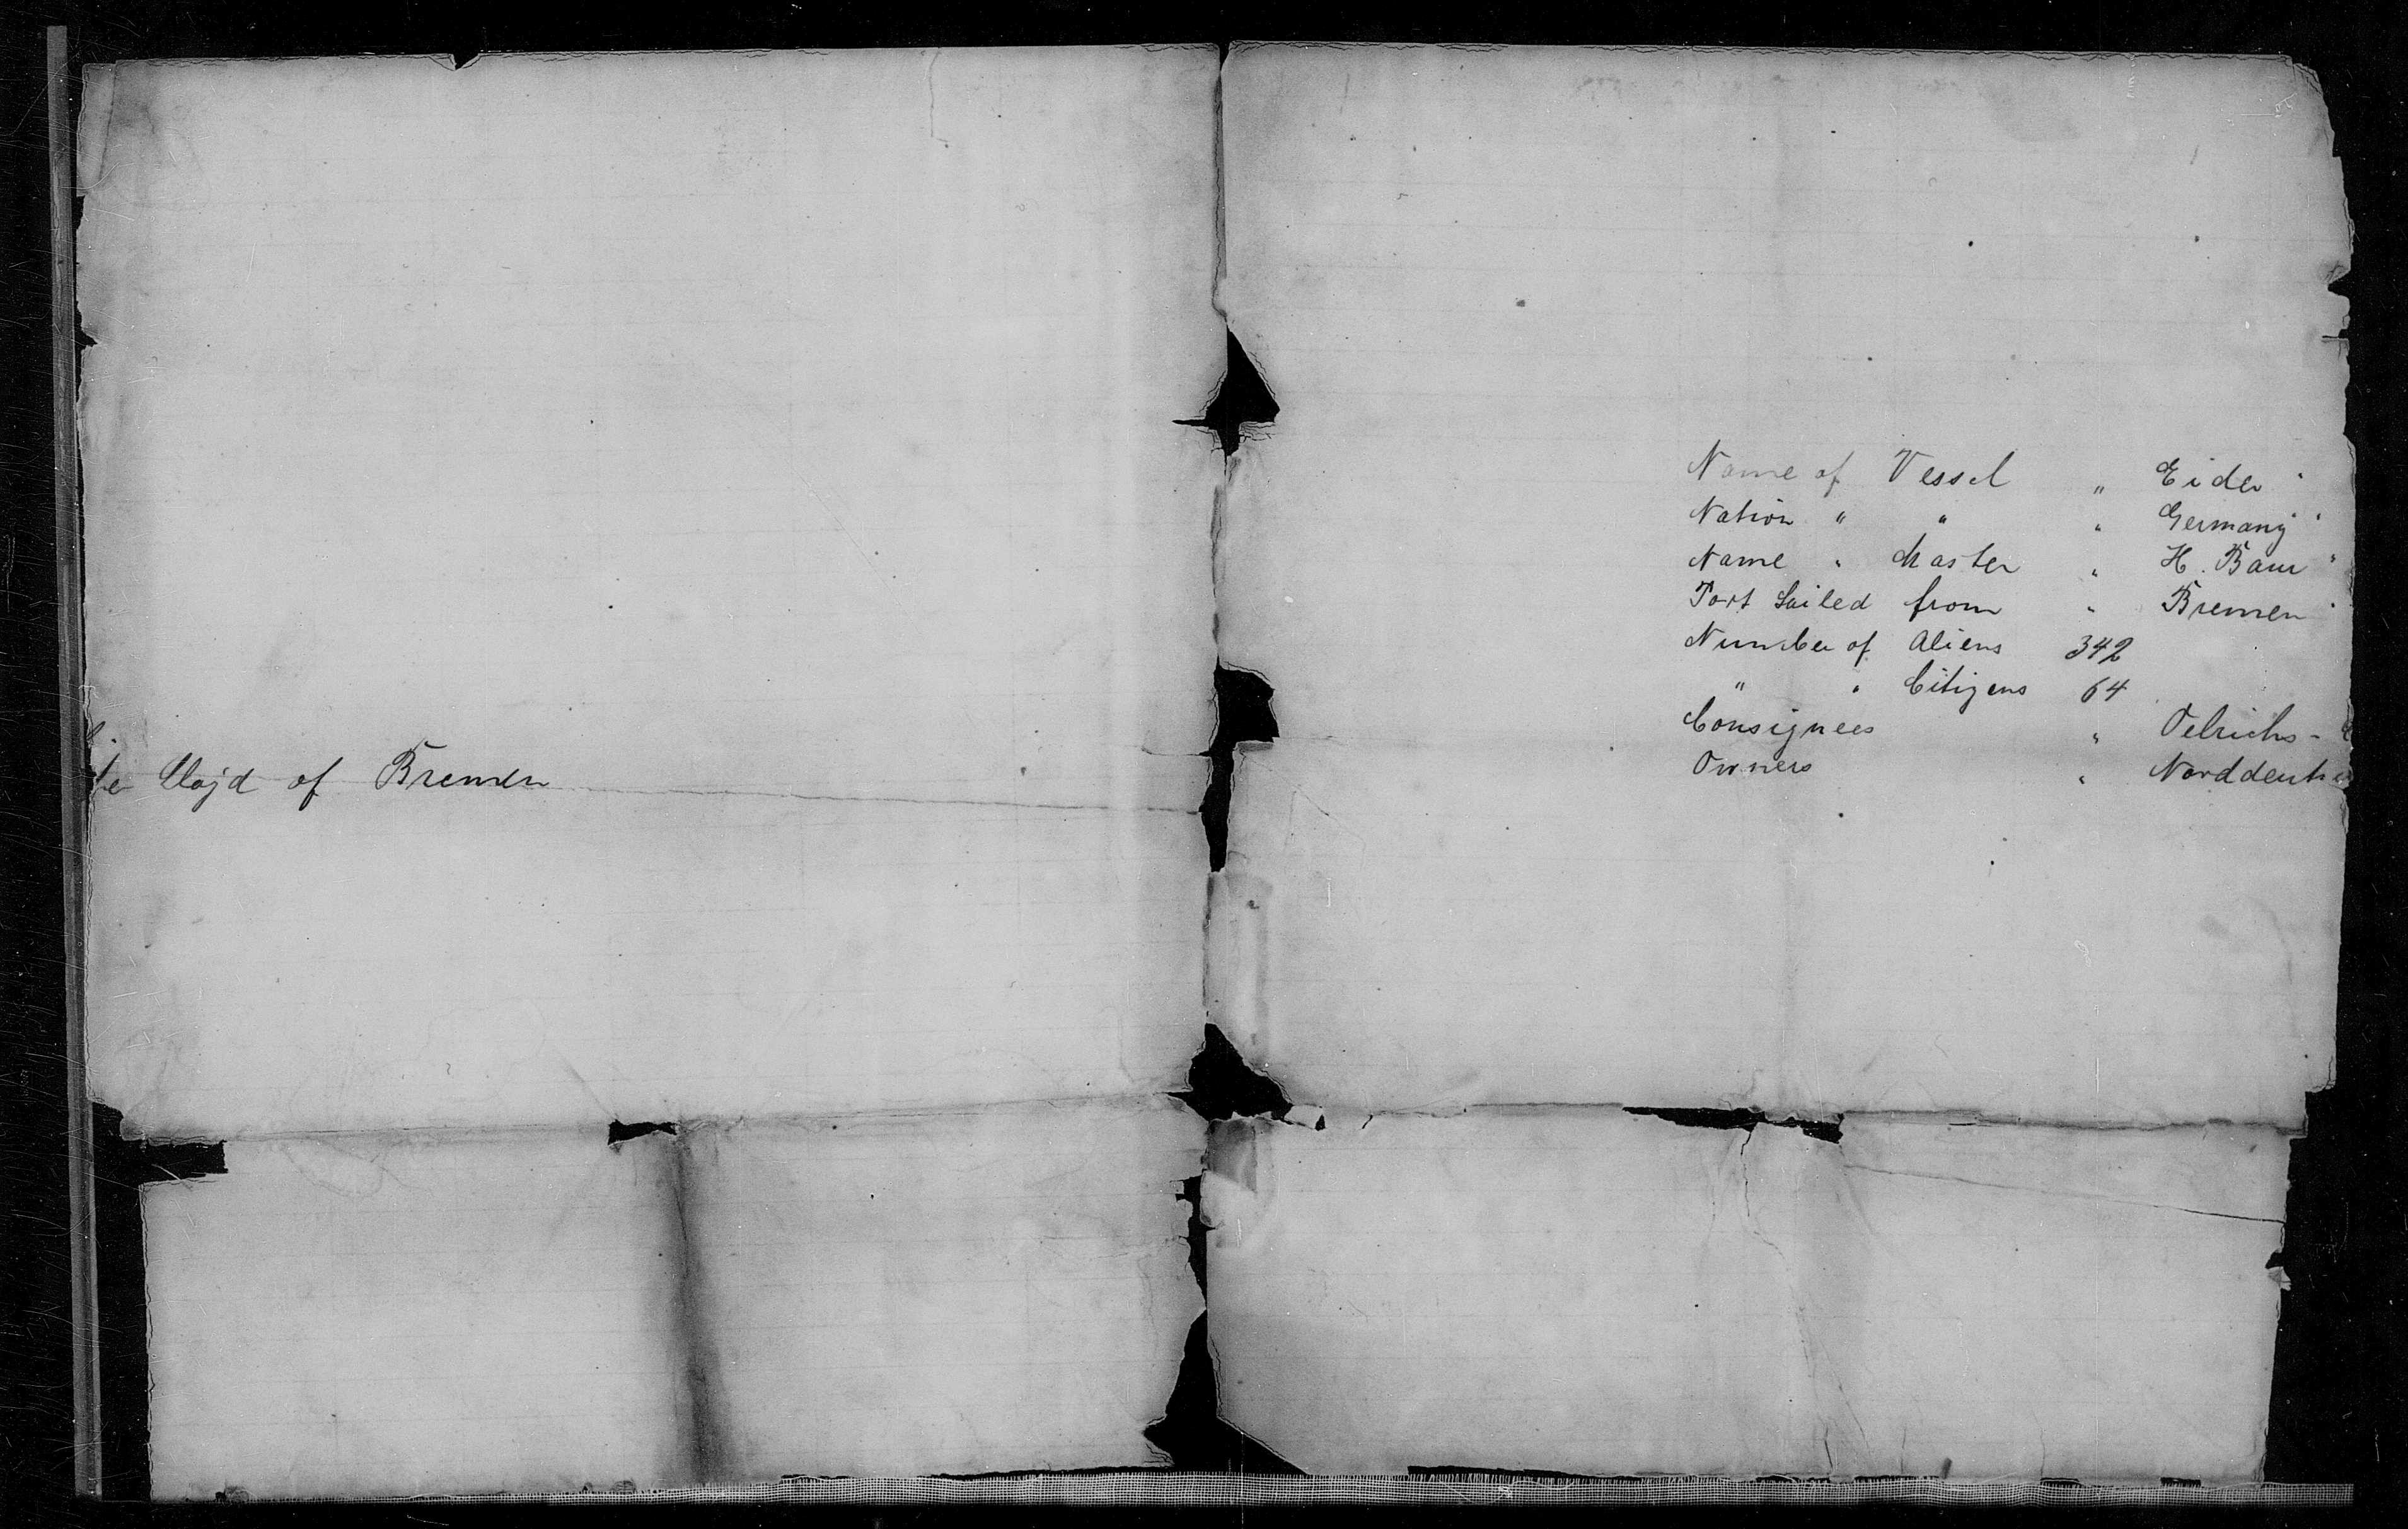 Lloyd of Bremen
Name of Vessel " Eider "
Nation " " " Germany "
Name " Master " H. Baur "
Port Sailed from " Bremen "
Number of Aliens 342
" " Citizens 64
Consignees " Oelrichs -
Owners " Norddeuts